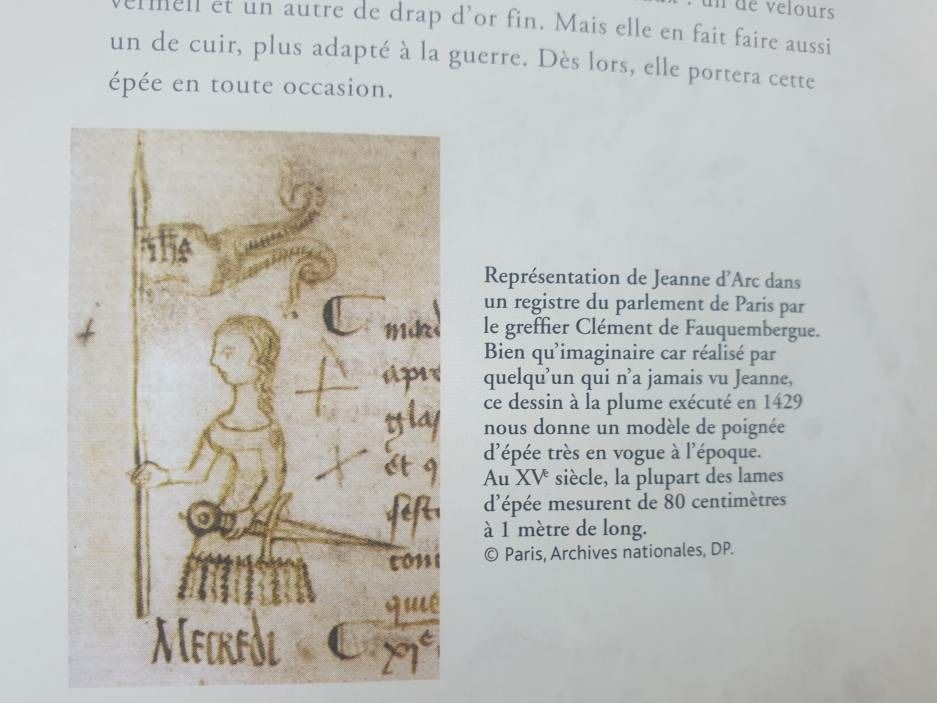 vermeil et un autre de drap d'or fin. Mais elle en fait faire aussi
un de velours
un de cuir, plus adapté à la guerre. Dès lors, elle portera cette
épée en toute occasion.
Représentation de Jeanne d'Arc dans
un registre du parlement de Paris par
le greffier Clément de Fauquembergue.
Bien qu'imaginaire car réalisé par
quelqu'un qui n'a jamais vu Jeanne,
ce dessin à la plume exécuté en 1429
nous donne un modèle de poignée
d'épée très en vogue à l'époque.
Au XVe siècle, la plupart des lames
d'épée mesurent de 80 centimètres
à 1 mètre de long.
© Paris, Archives nationales, DP.
ihs
et q
MECREDI